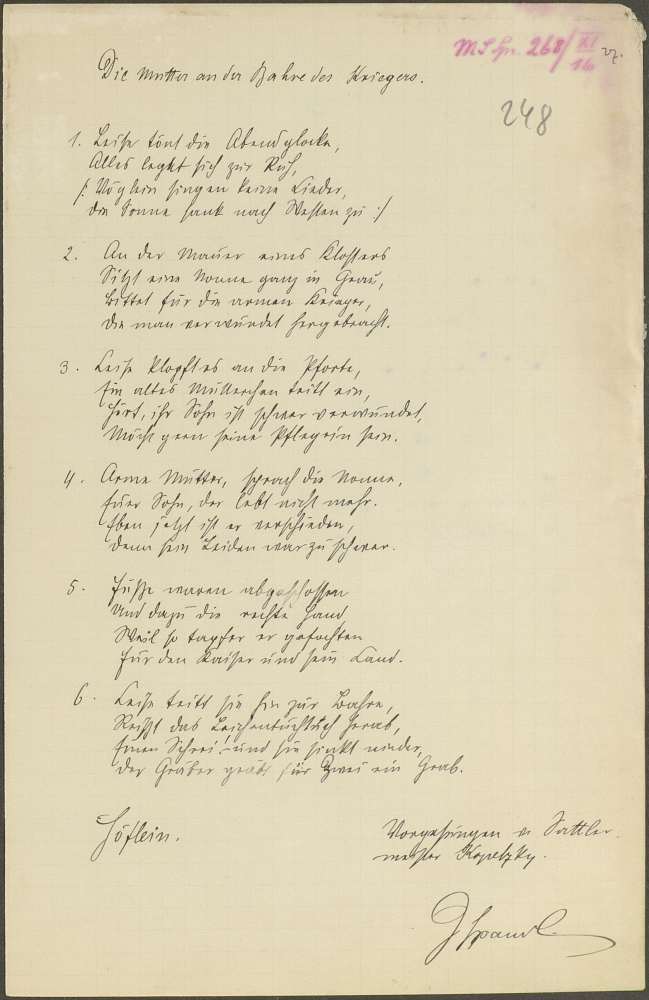 M.S.Sp. 268/XI 16 27.
248
Die Mutter an der Bahre des Kriegers.
1. Leise tönt die Abendglocke,
Alles legt sich zur Ruh,
/: Vöglein singen keine Lieder,
die Sonne sank nach Westen zu :/
2. An der Mauer eines Klosters
Sitzt eine Nonne ganz in Grau,
Bittet für die armen Krieger,
Die man verwundet hergebracht.
3. Leise klopft es an die Pforte,
Ein altes Mütterchen tritt ein,
Hört, ihr Sohn ist schwer verwundet,
Möcht gern seine Pflegerin sein.
4. Arme Mutter, sprach die Nonne,
Euer Sohn, der lebt nicht mehr.
Eben jetzt ist er verschieden,
Denn sein Leiden war zu schwer.
5. Füße waren abgeschossen
Und dazu die rechte Hand
Weil so tapfer er gefochten
Für den Kaiser und sein Land.
6. Leise tritt sie hin zur Bahre,
Reißt das Leichentuch herab,
Einen Schrei! und sie sinkt nieder,
Der Gräber gräbt für Zwei ein Grab.
Höflein.
Vorgesungen v. Sattler
meister Kopetzky.
J Spandl